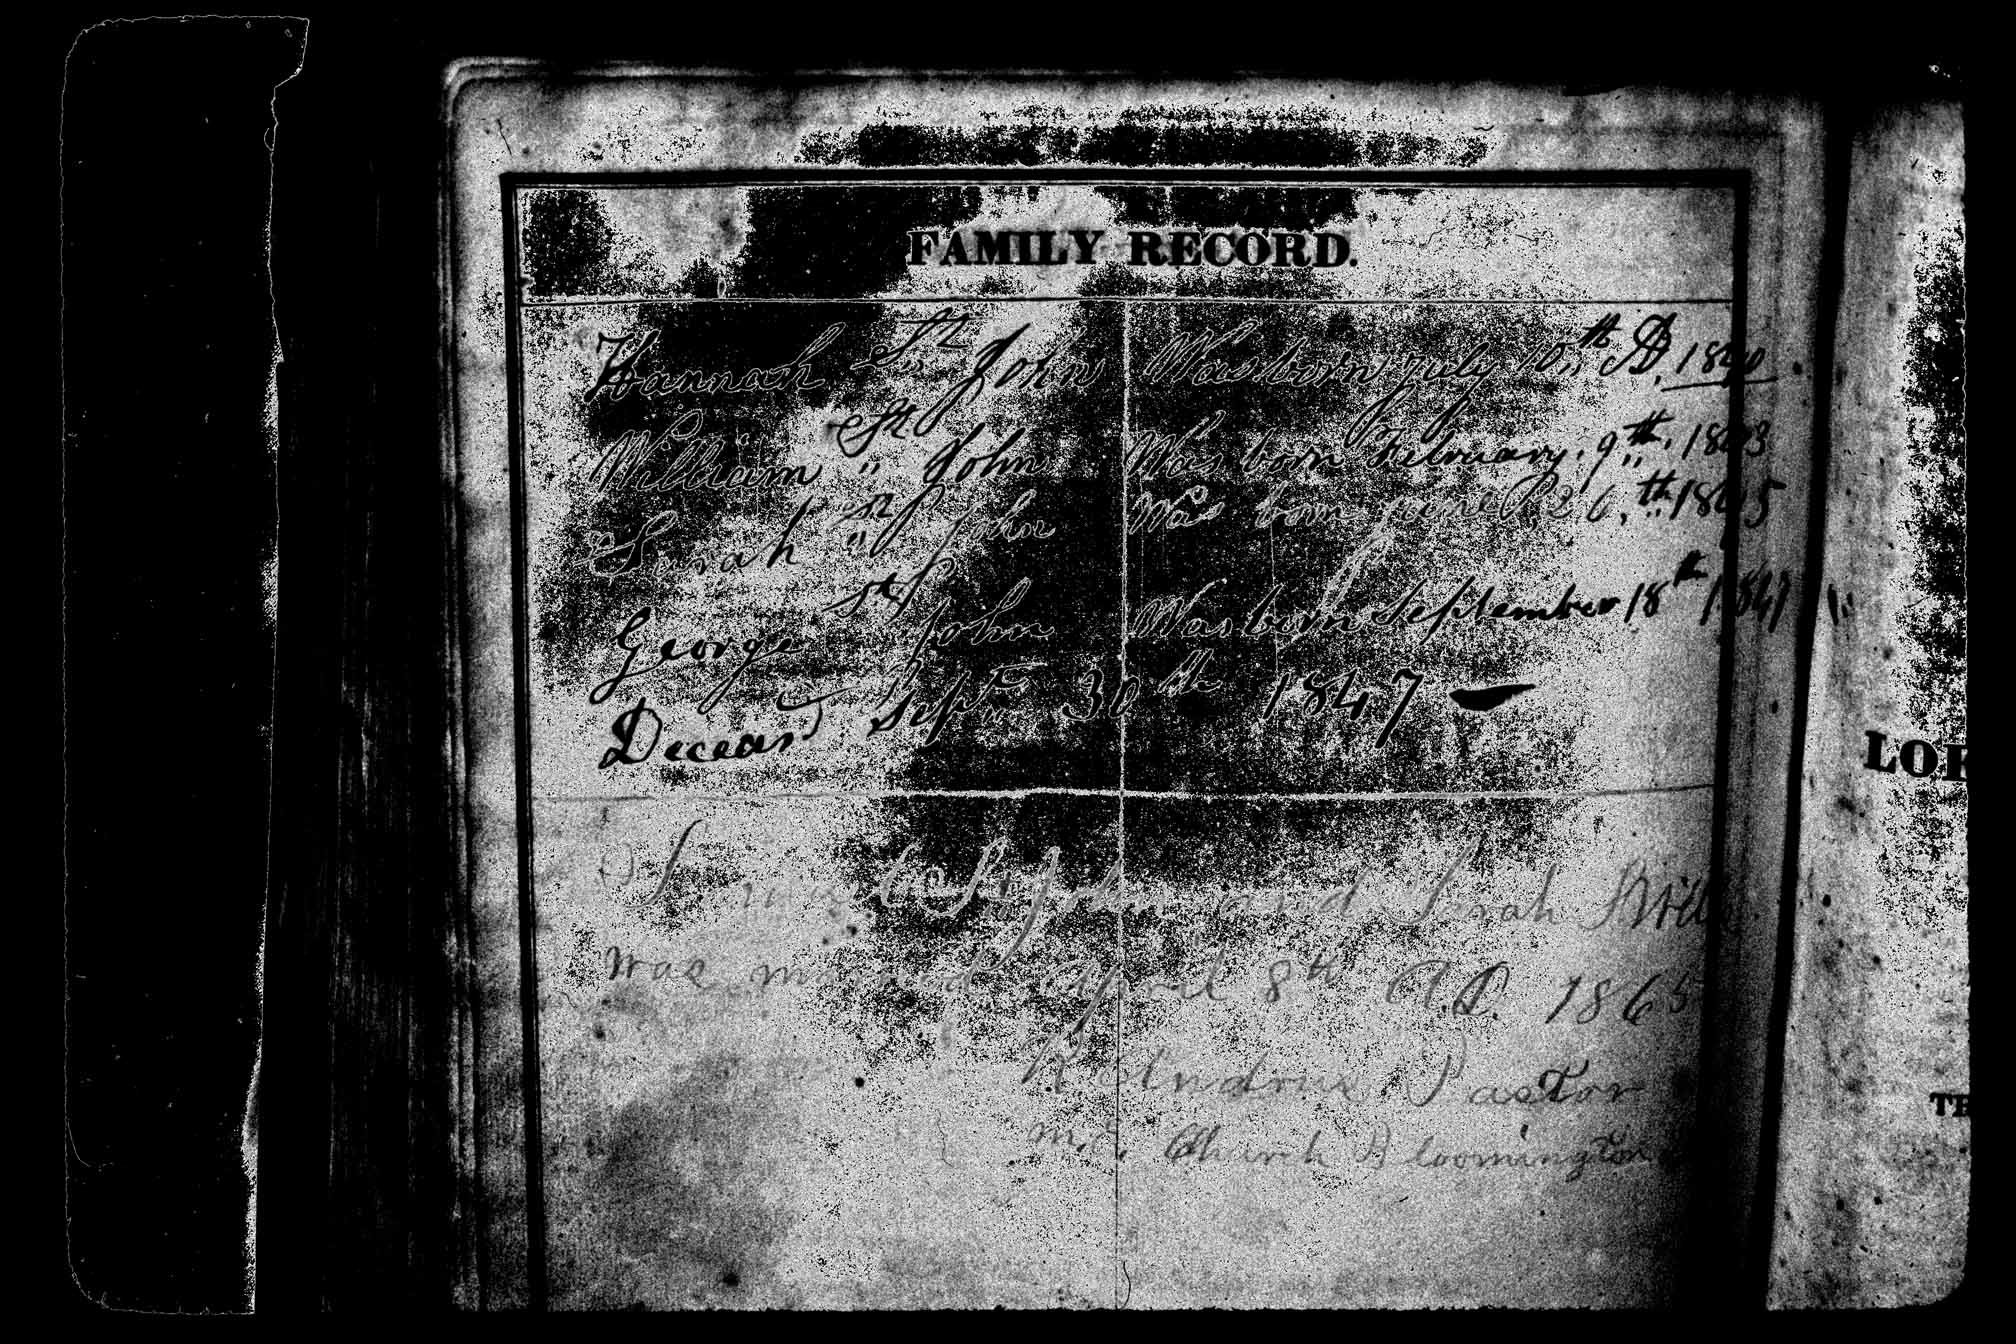 FAMILY RECORD.
Hannah St. John Was born July 10th AD. 1840
William St. John Was born February 9th 1843
Sarah St. John Was born June 26th 1845
George St John Was born September 18th 1847
Deceasd Sept 30th 1847
St John and Sarah
was married April 8th A.D. 1865
Andrus Pastor
M. E. Church Bloomington
LOR
TH